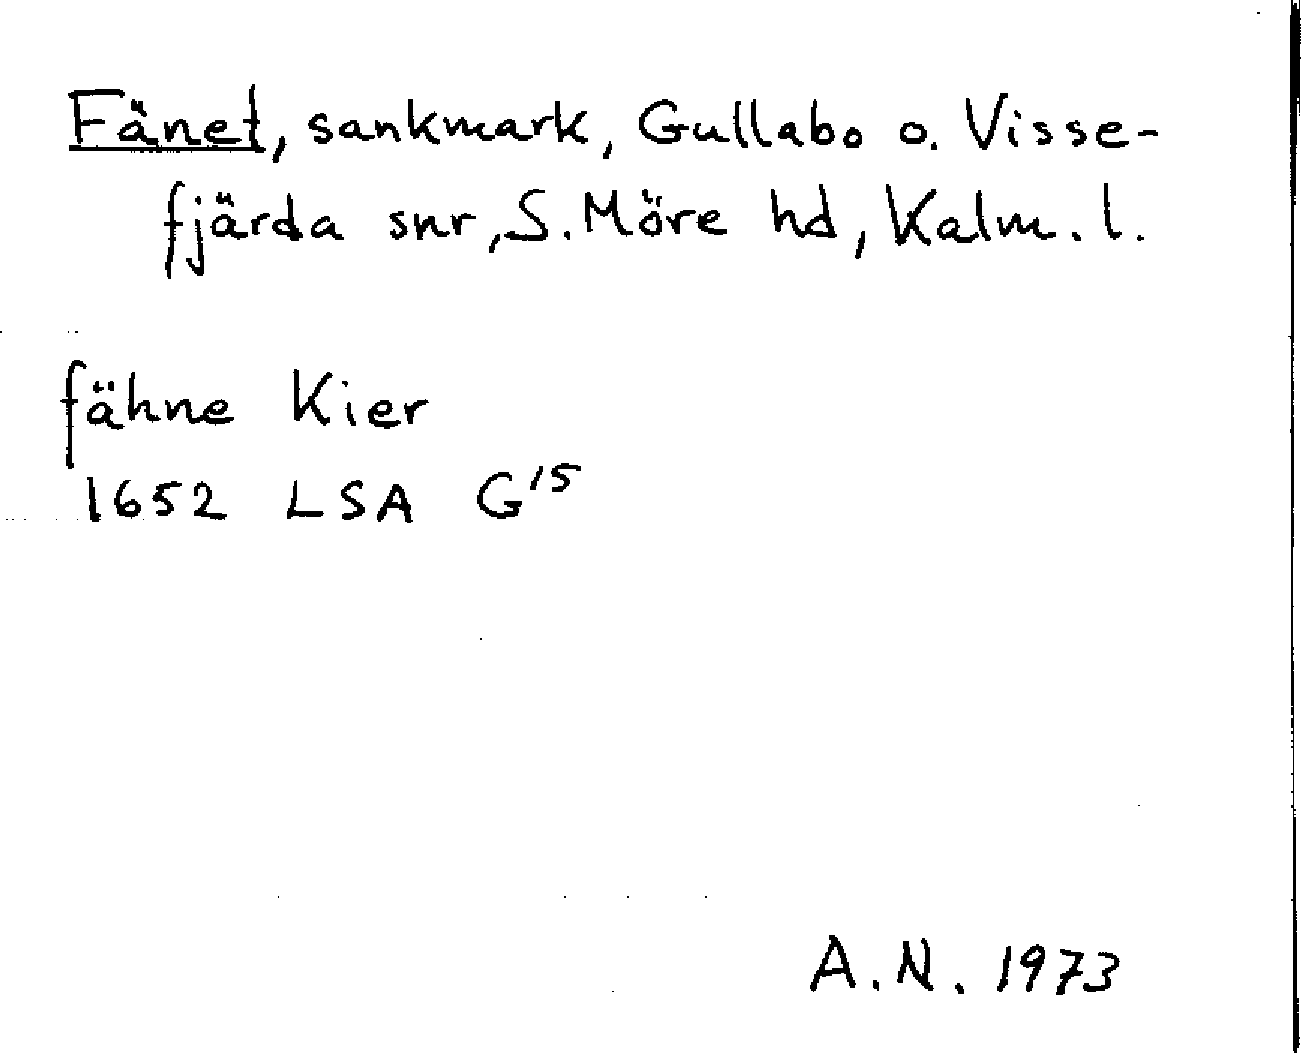 Fänet, sankmark, Gullabo o. Visse-
fjärda snr, S. Möre hd, Kalm. l.
fähne Kier
1652 LSA G15
A.N. 1973